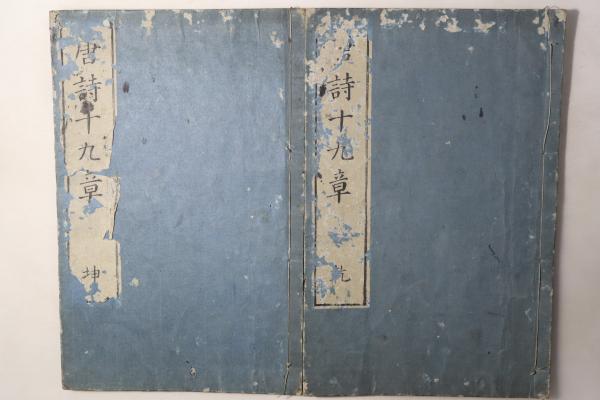 唐詩十九章 乾
唐詩十九章 坤